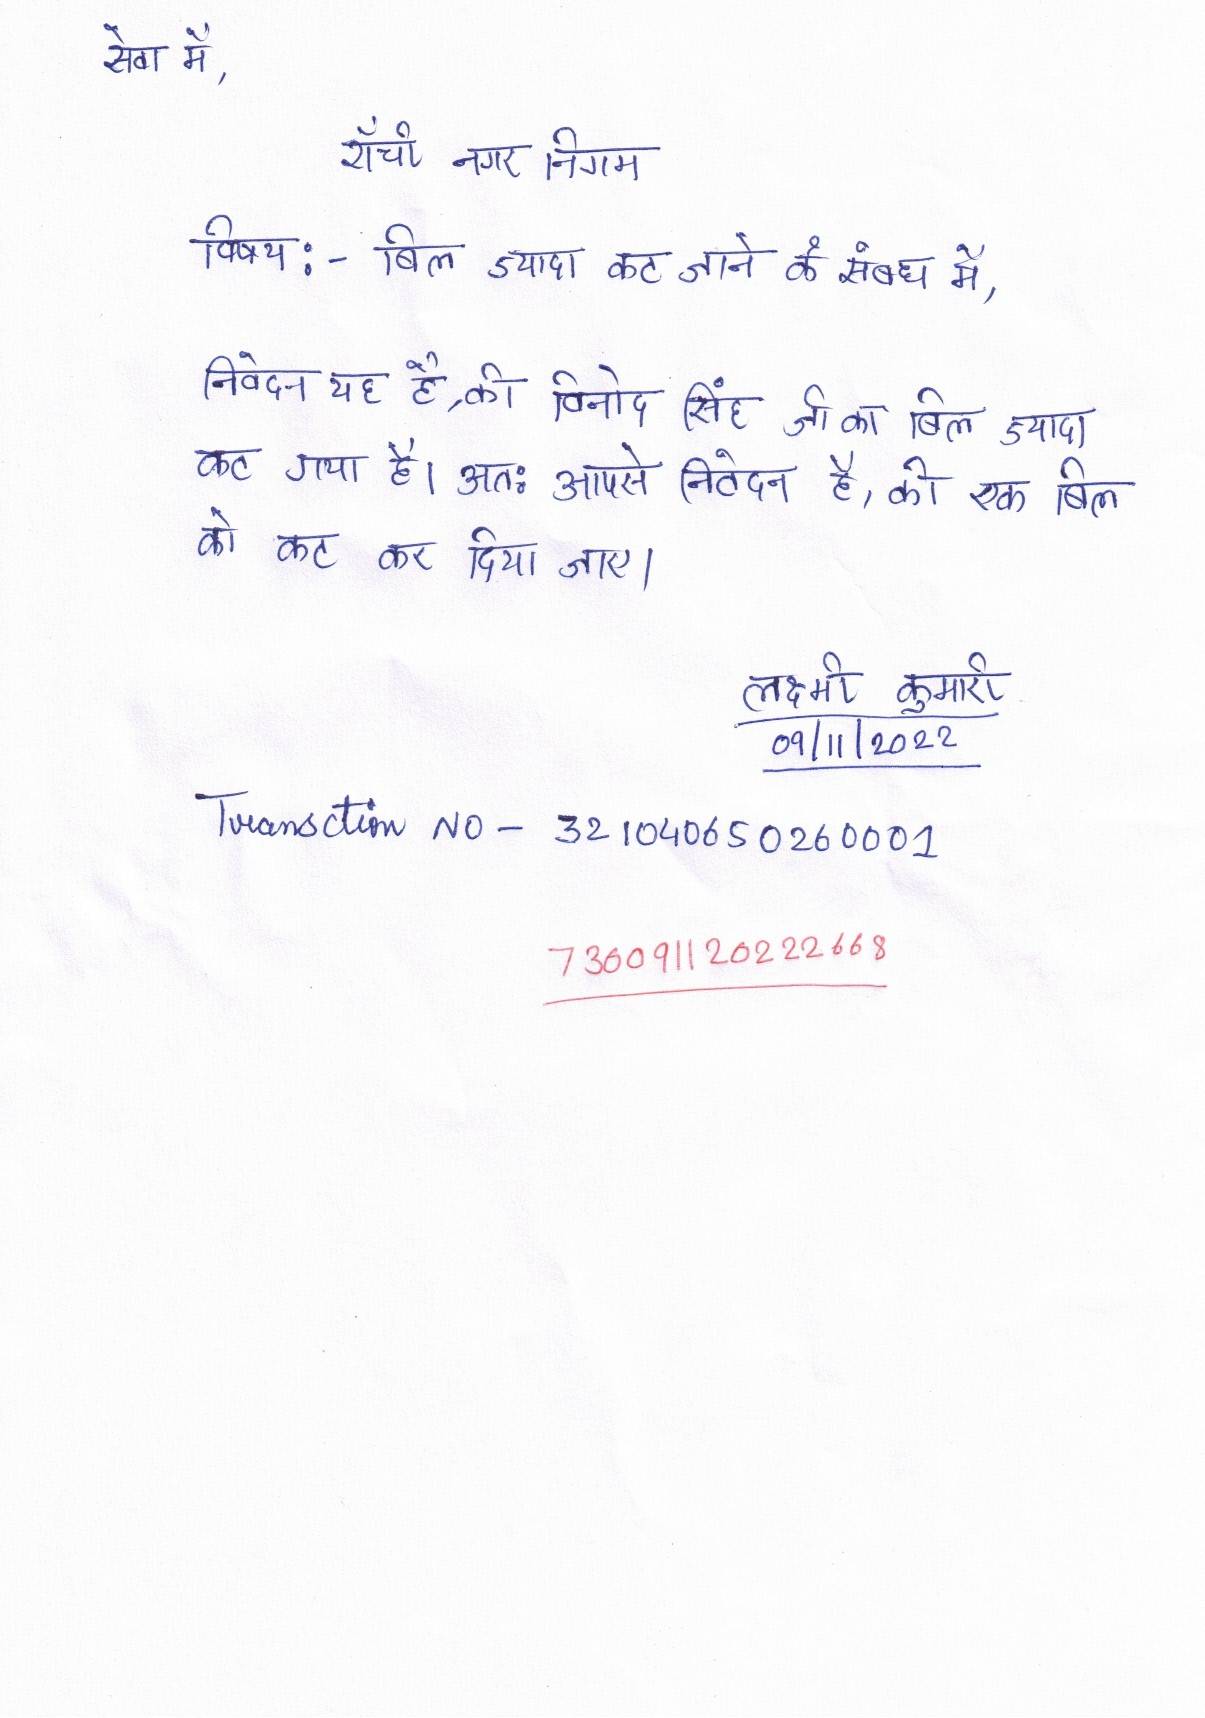 सेवा में,
राँची नगर निगम
विषय:- बिल ज्यादा कट जाने के संबध में,
निवेदन यह है, की विनोद सिंह जी का बिल ज्यादा
कट गया है। अतः आपसे निवेदन है, की एक बिल
को कट कर दिया जाए।
लक्ष्मी कुमारी
09/11/2022
Transction NO - 321040650260001
730091120222668